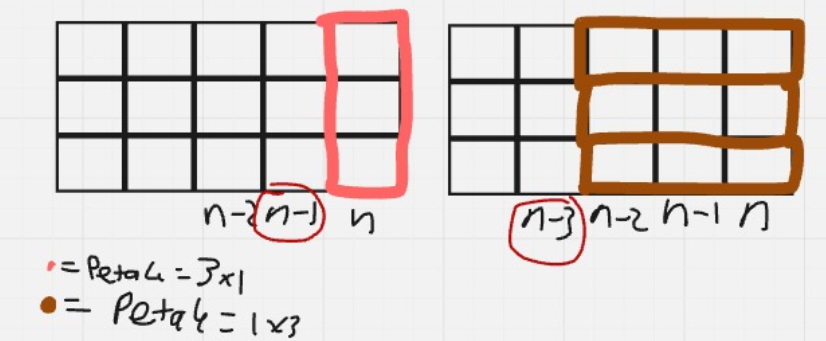 n-2 n-1 n
n-3 n-2 n-1 n
= Petak = 3x1
= Petak = 1x3